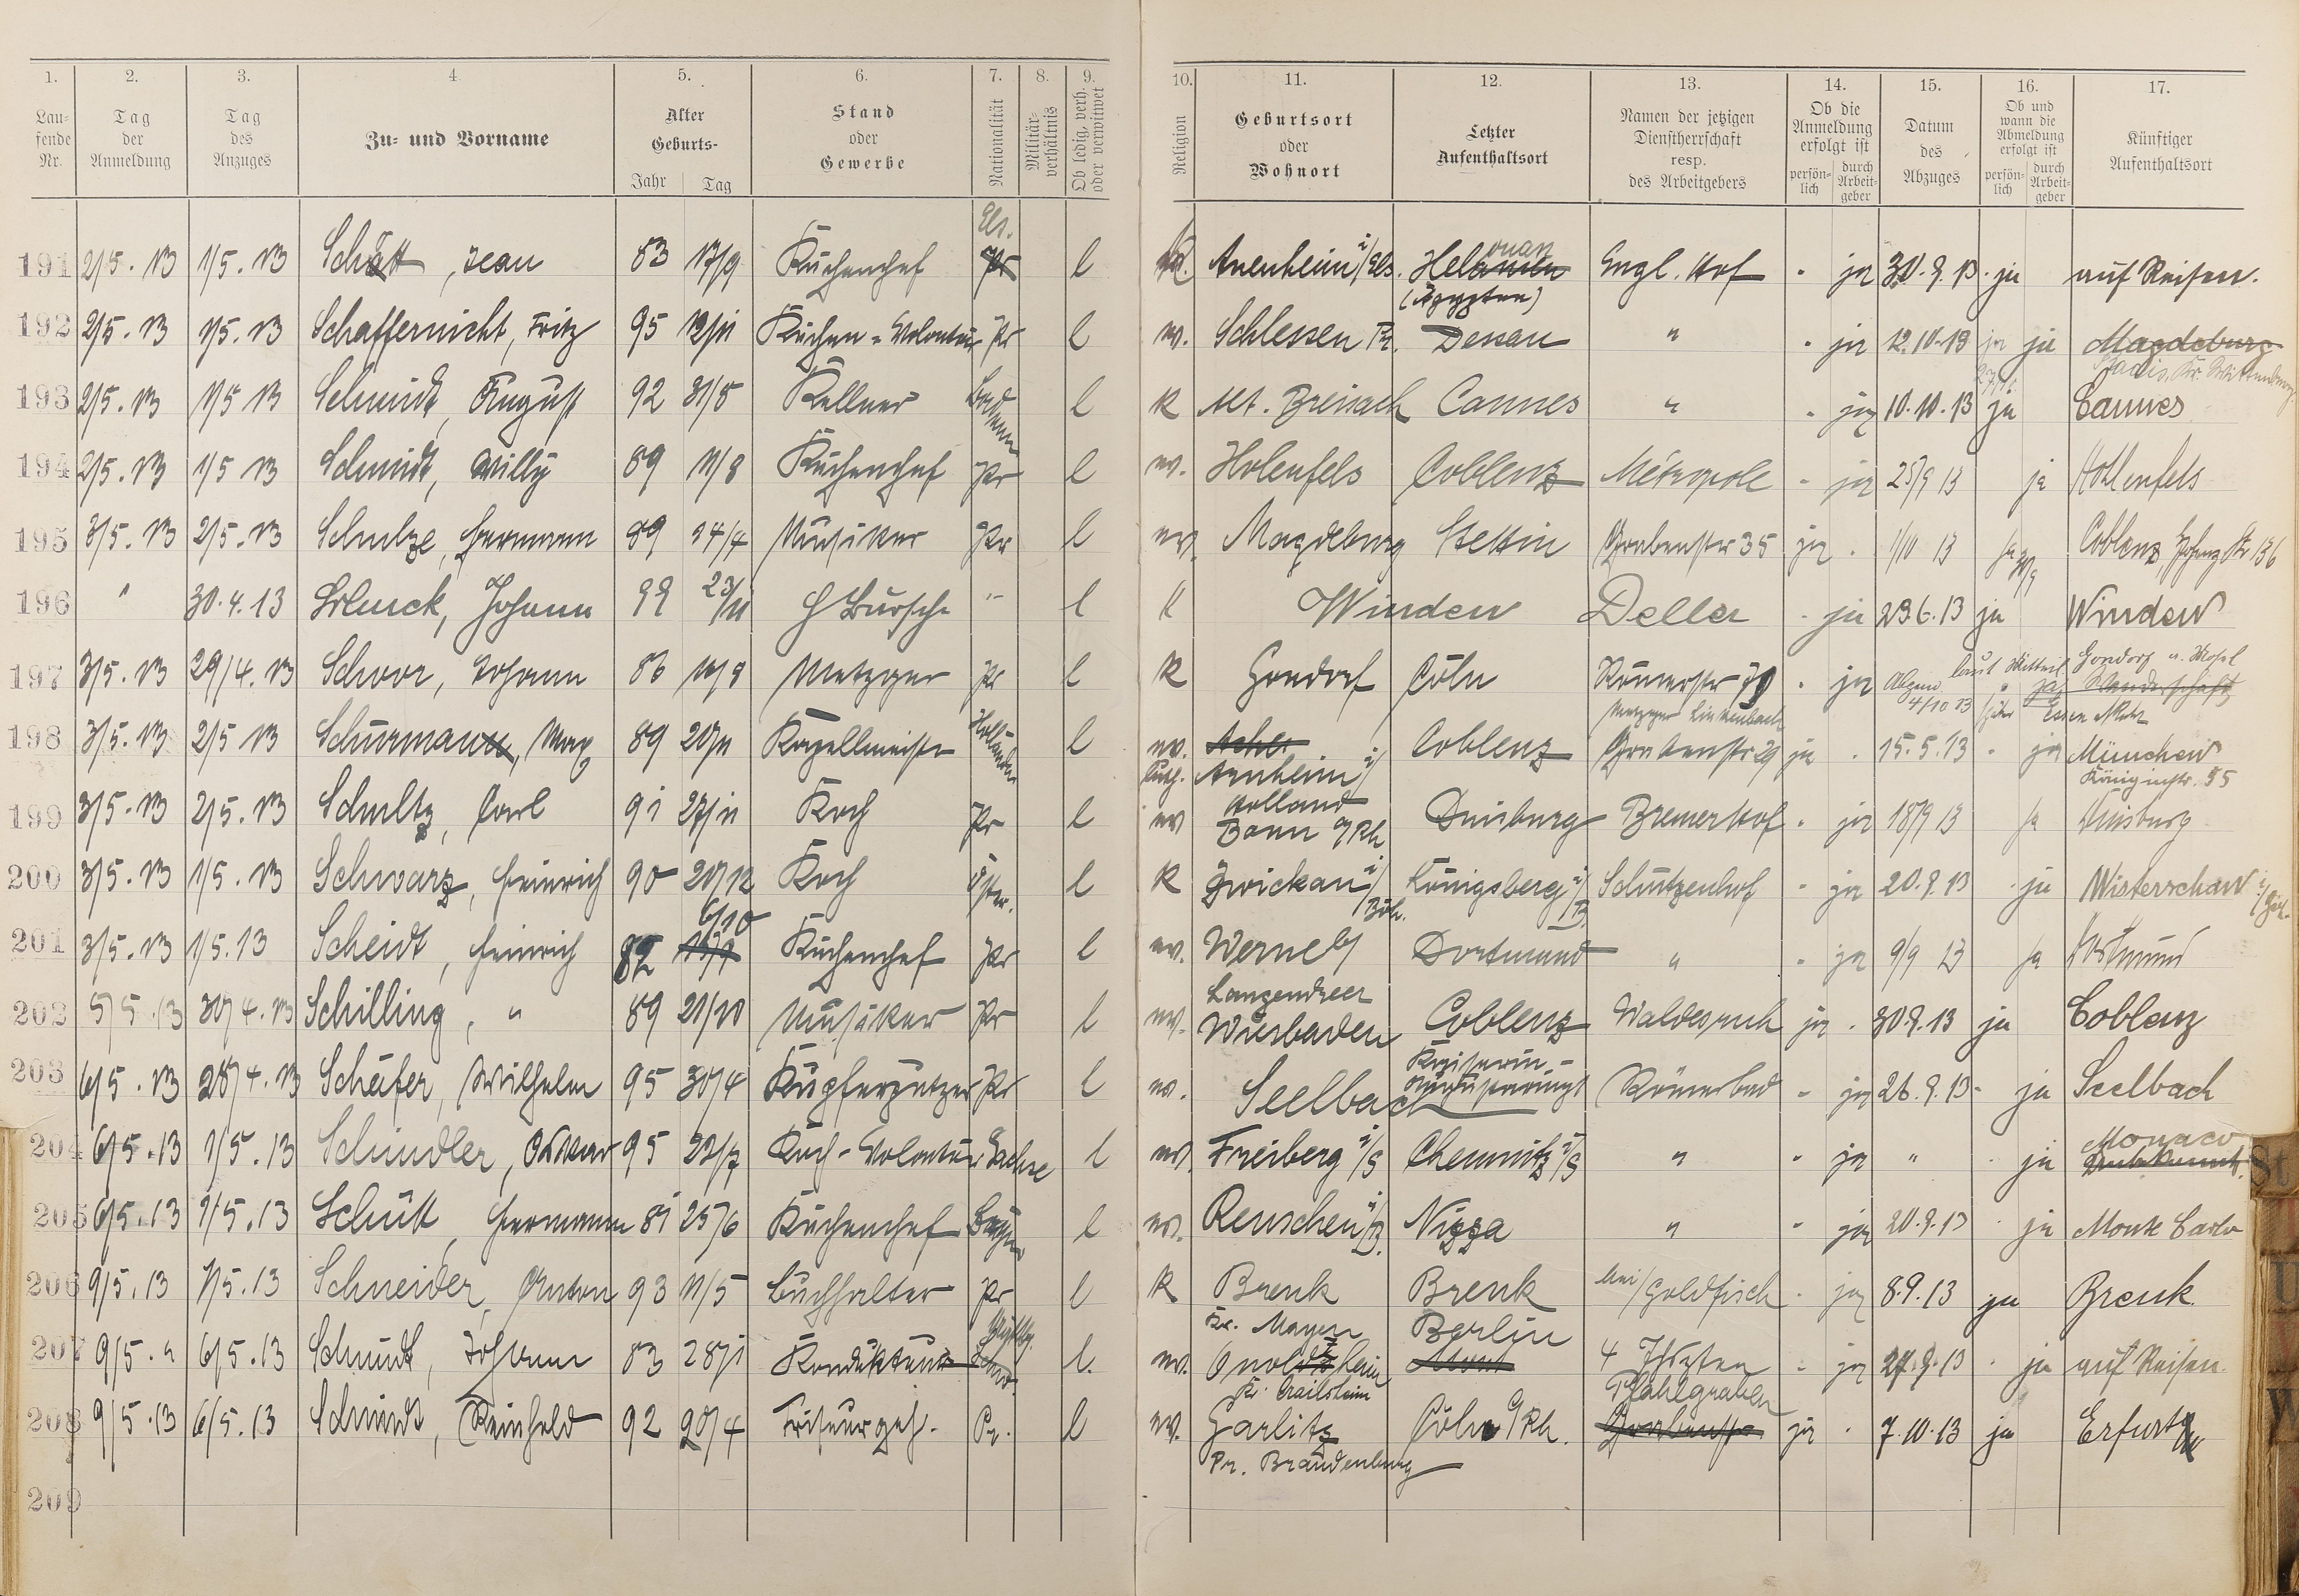 1. 2. 3. 4. 5. 6. 7. 8. 9. 10. 11. 12. 13. 14. 15. 16. 17.
Laufende Nr. Tag der Anmeldung Tag des Anzuges Zu- und Vorname Alter Geburts- Jahr Tag Stand oder Gewerbe Nationalität Militärverhältnis Ob ledig, verh. oder verwitwet Religion Geburtsort oder Wohnort Letzter Aufenthaltsort Namen der jetzigen Dienstherrschaft resp. des Arbeitgebers Ob die Anmeldung erfolgt ist persönlich durch Arbeitgeber Datum des Abzuges Ob und wann die Abmeldung erfolgt ist persönlich durch Arbeitgeber Künftiger Aufenthaltsort
Els. ouan
191 2/5. 13 1/5. 13 Schätt, Jean 83 17/9 Küchenchef Pr l Avenheim i/Els. Hel Engl. Hof " ja 30.9.13 " ja auf Reisen.
(Ägypten)
192 2/5. 13 1/5. 13 Schaffernicht, Fritz 95 12/11 Küchen-Volontär Pr l ev. Schlessen Pr. Dessau " " ja 12.10.13 ja Magdeburg
193 2/5. 13 1/5 13 Schmidt, August 92 31/8 Kellner Badenser l k Alt. Breisach Cannes " " ja 10.10.13 ja Cannes
194 2/5. 13 1/5 13 Schmidt, Willy 89 11/8 Küchenchef Pr l ev. Holenfels Coblenz Métropole " ja 25/9 13 ja Hollenfels
195 3/5. 13 2/5. 13 Schulze, Hermann 89 24/4 Musiker Pr l ev. Magdeburg Stettin Grabenstr 35 ja " 1/10 13 ja 30/9 Coblenz, Str 136
196 " 30.4.13 Schuck, Johann 98 23/11 H Bursche " l k Winden Deller " ja 23.6.13 ja Winden
197 3/5. 13 29/4. 13 Schoor, Johann 86 10/8 Metzger Pr l k Gondorf Cöln Römerstr ja laut Mitteil. Gondorf a. Mosel
4/10 13 ja Wanderschaft
Metzger Linkenbach Essen Ruhr
198 3/5. 13 2/5 13 Schürmann, Max 89 20/11 Kapellmeister Holländer l ev. Coblenz Grabenstr 29 ja " 15.5.13 " ja München
luth. Arnheim i/ Holland Königinstr. 55
199 3/5. 13 2/5. 13 Schultz, Carl 91 27/11 Koch Pr l ev Bonn a/Rh Duisburg Bremerhof " ja 18/9 13 ja Duisburg
200 3/5. 13 1/5. 13 Schwarz, Heinrich 90 20/12 Koch Öster. l k Zwickau i/Böh. Königsberg i/B. Schützenhof " ja 20.9.13 " ja Wisterschan i/Böh.
6/10
201 3/5. 13 1/5. 13 Scheidt, Heinrich 82 Küchenchef Pr l ev. Werne b/ Langendreer Dortmund " " ja 9/9 13 ja Dortmund
202 5/5.13 30/4. 13 Schilling, " 89 21/10 Musiker Pr l ev. Wiesbaden Coblenz Waldesruh ja " 30.9.13 ja Coblenz
203 6/5. 13 28/4. 13 Schäfer, Wilhelm 95 30/4 Kupferputzer Pr l ev. Seelbach Kaiserin- Römerbad " ja 26.9.13 " ja Seelbach
204 6/5. 13 1/5. 13 Schindler, Oskar 95 22/7 Koch-Volontär Sachse l ev. Freiberg i/S Chemnitz i/S " " ja " " ja Monaco
205 6/5. 13 1/5. 13 Schütt, Hermann 81 25/6 Küchenchef Bayer l ev. Renschen i/B. Nizza " " ja 20.9.13 " ja Monte Carlo
206 9/5. 13 7/5. 13 Schneider, Anton 93 11/5 Buchhalter Pr l k Brenk Brenk bei/Goldfisch " ja 8.9.13 ja Brenk
Kr. Mayen Berlin
207 9/5. " 6/5.13 Schmidt, Johann 83 28/1 Konditeur l. ev. Onolzheim 4 Thürten " ja 27.9.13 " ja auf Reisen
Kr. Crailsheim Pfahlgraben
208 9/5.13 6/5.13 Schmidt, Reinhold 92 20/4 Friseurgeh. Pr. l ev. Garlitz Cöln a/Rh. ja " 7.10.13 ja Erfurt
Pr. Brandenburg
209